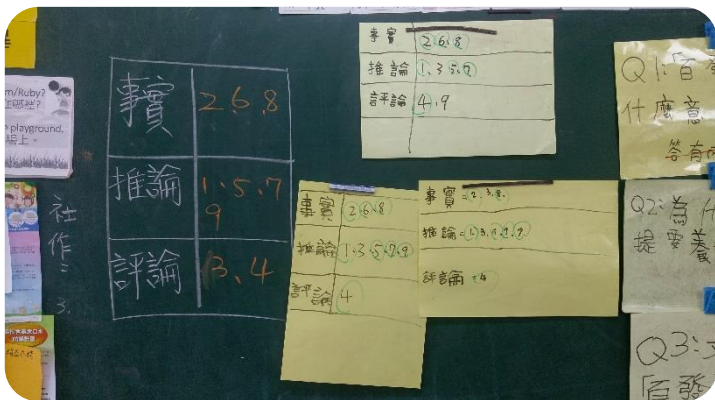 m/Ruby?
playground.
社作:
3.
事實 2、6、8
推論 1、5、7
9
評論 3、4
事實 2、6、8
推論
評論 4、9
事實 2、6、8
推論 1、3、5、7、9
評論 4
事實:2、3、8
推論:
評論:4
Q1:「百
什麼意
答有
Q2:為什
提要養
Q3:
「百發